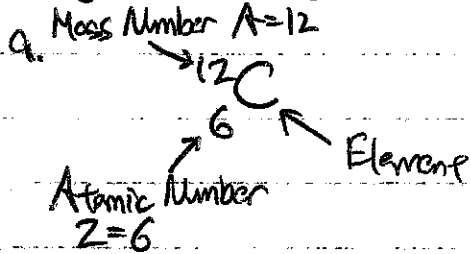 a. Mass Number A=12
12
C
6
Element
Atomic Number
Z=6